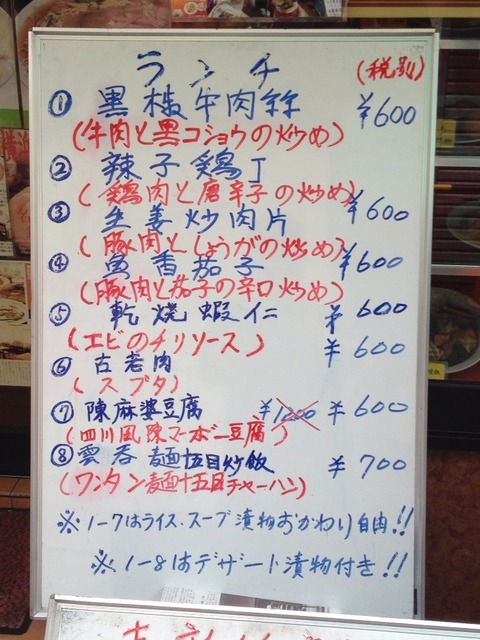 ランチ (税別)
① 黒椒牛肉絲 ¥600
(牛肉と黒コショウの炒め)
② 辣子鶏丁
(鶏肉と唐辛子の炒め) ¥600
③ 生姜炒肉片
(豚肉としょうがの炒め)
④ 魚香茄子 ¥600
(豚肉と茄子の辛口炒め)
⑤ 乾焼蝦仁 ¥600
(エビのチリソース) ¥600
⑥ 古老肉
(スブタ)
⑦ 陳麻婆豆腐 ¥1200 ¥600
(四川風陳マーボー豆腐)
⑧ 雲呑麺+五目炒飯 ¥700
(ワンタン麺+五目チャーハン)
※1-7はライス・スープ漬物おかわり自由!!
※1-8はデザート漬物付き!!